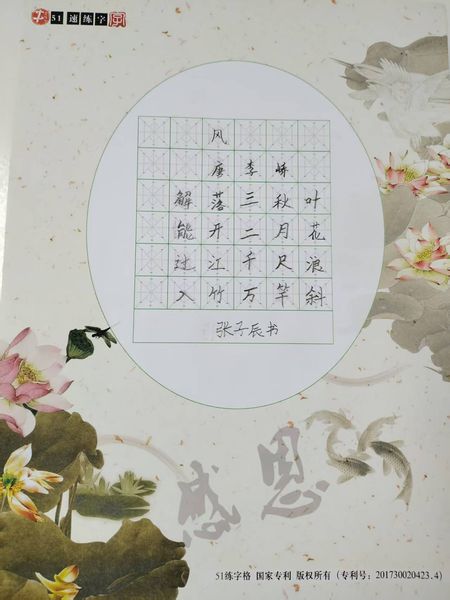 51速练字
风
唐 李 峤
解落三秋叶
能开二月花
过江千尺浪
入竹万竿斜
张子辰书
感恩
51练字格 国家专利 版权所有（专利号：201730020423.4）